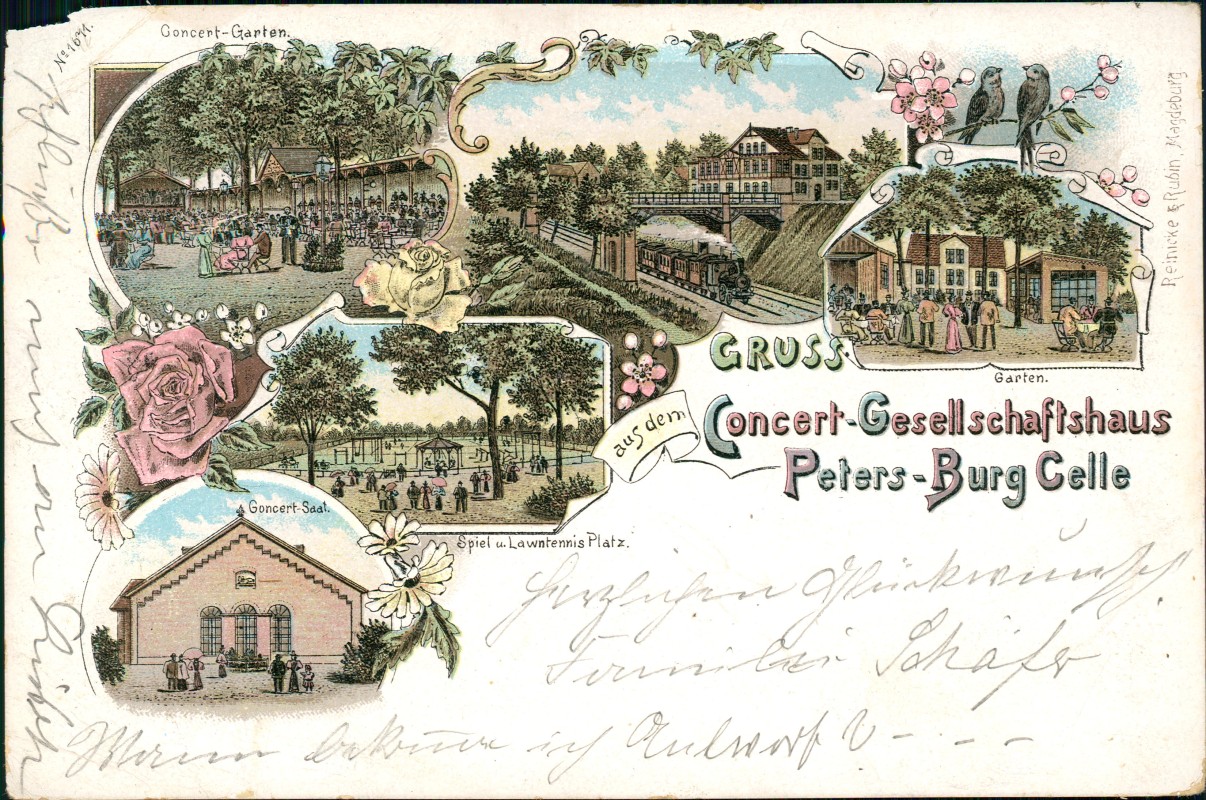 No 1671.
Concert-Garten.
Reinicke & Rubin, Magdeburg
Garten.
GRUSS
aus dem
Concert-Gesellschaftshaus
Peters-Burg Celle
Spiel u. Lawntennis Platz.
Concert-Saal.
Herzlichen Glückwunsch
Familie Schäfer
Wann bekomme ich Antwort